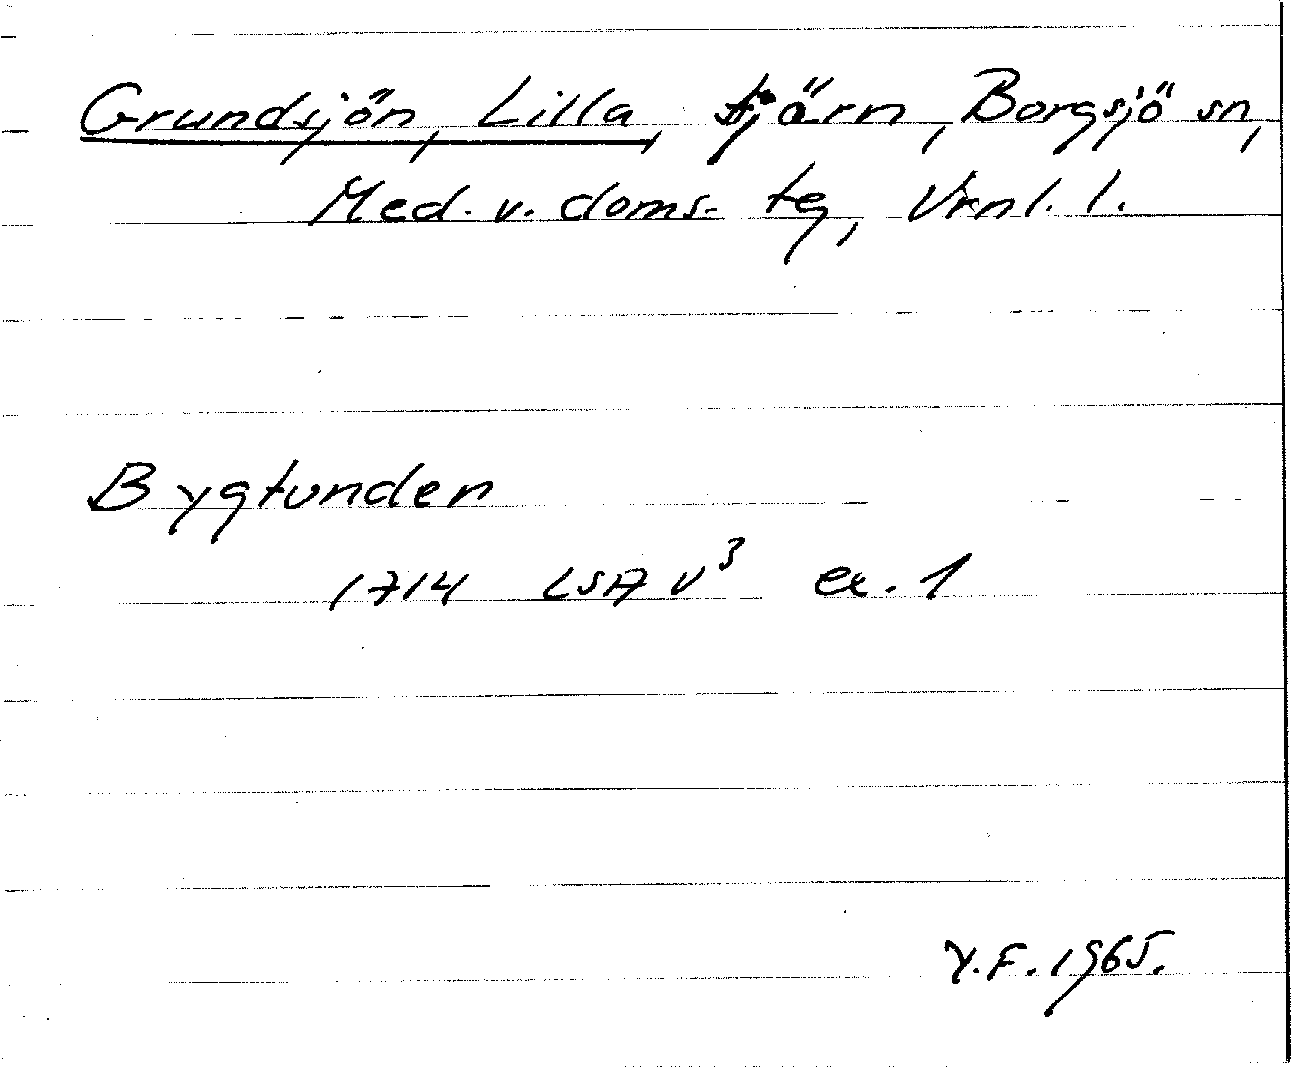 Grundsjön, Lilla, tjärn, Borgsjö sn,
Med. v. doms- tg, Vrnl. l.
Bygtunden
1714 LSA V³ ex. 1
Y.F. 1965.